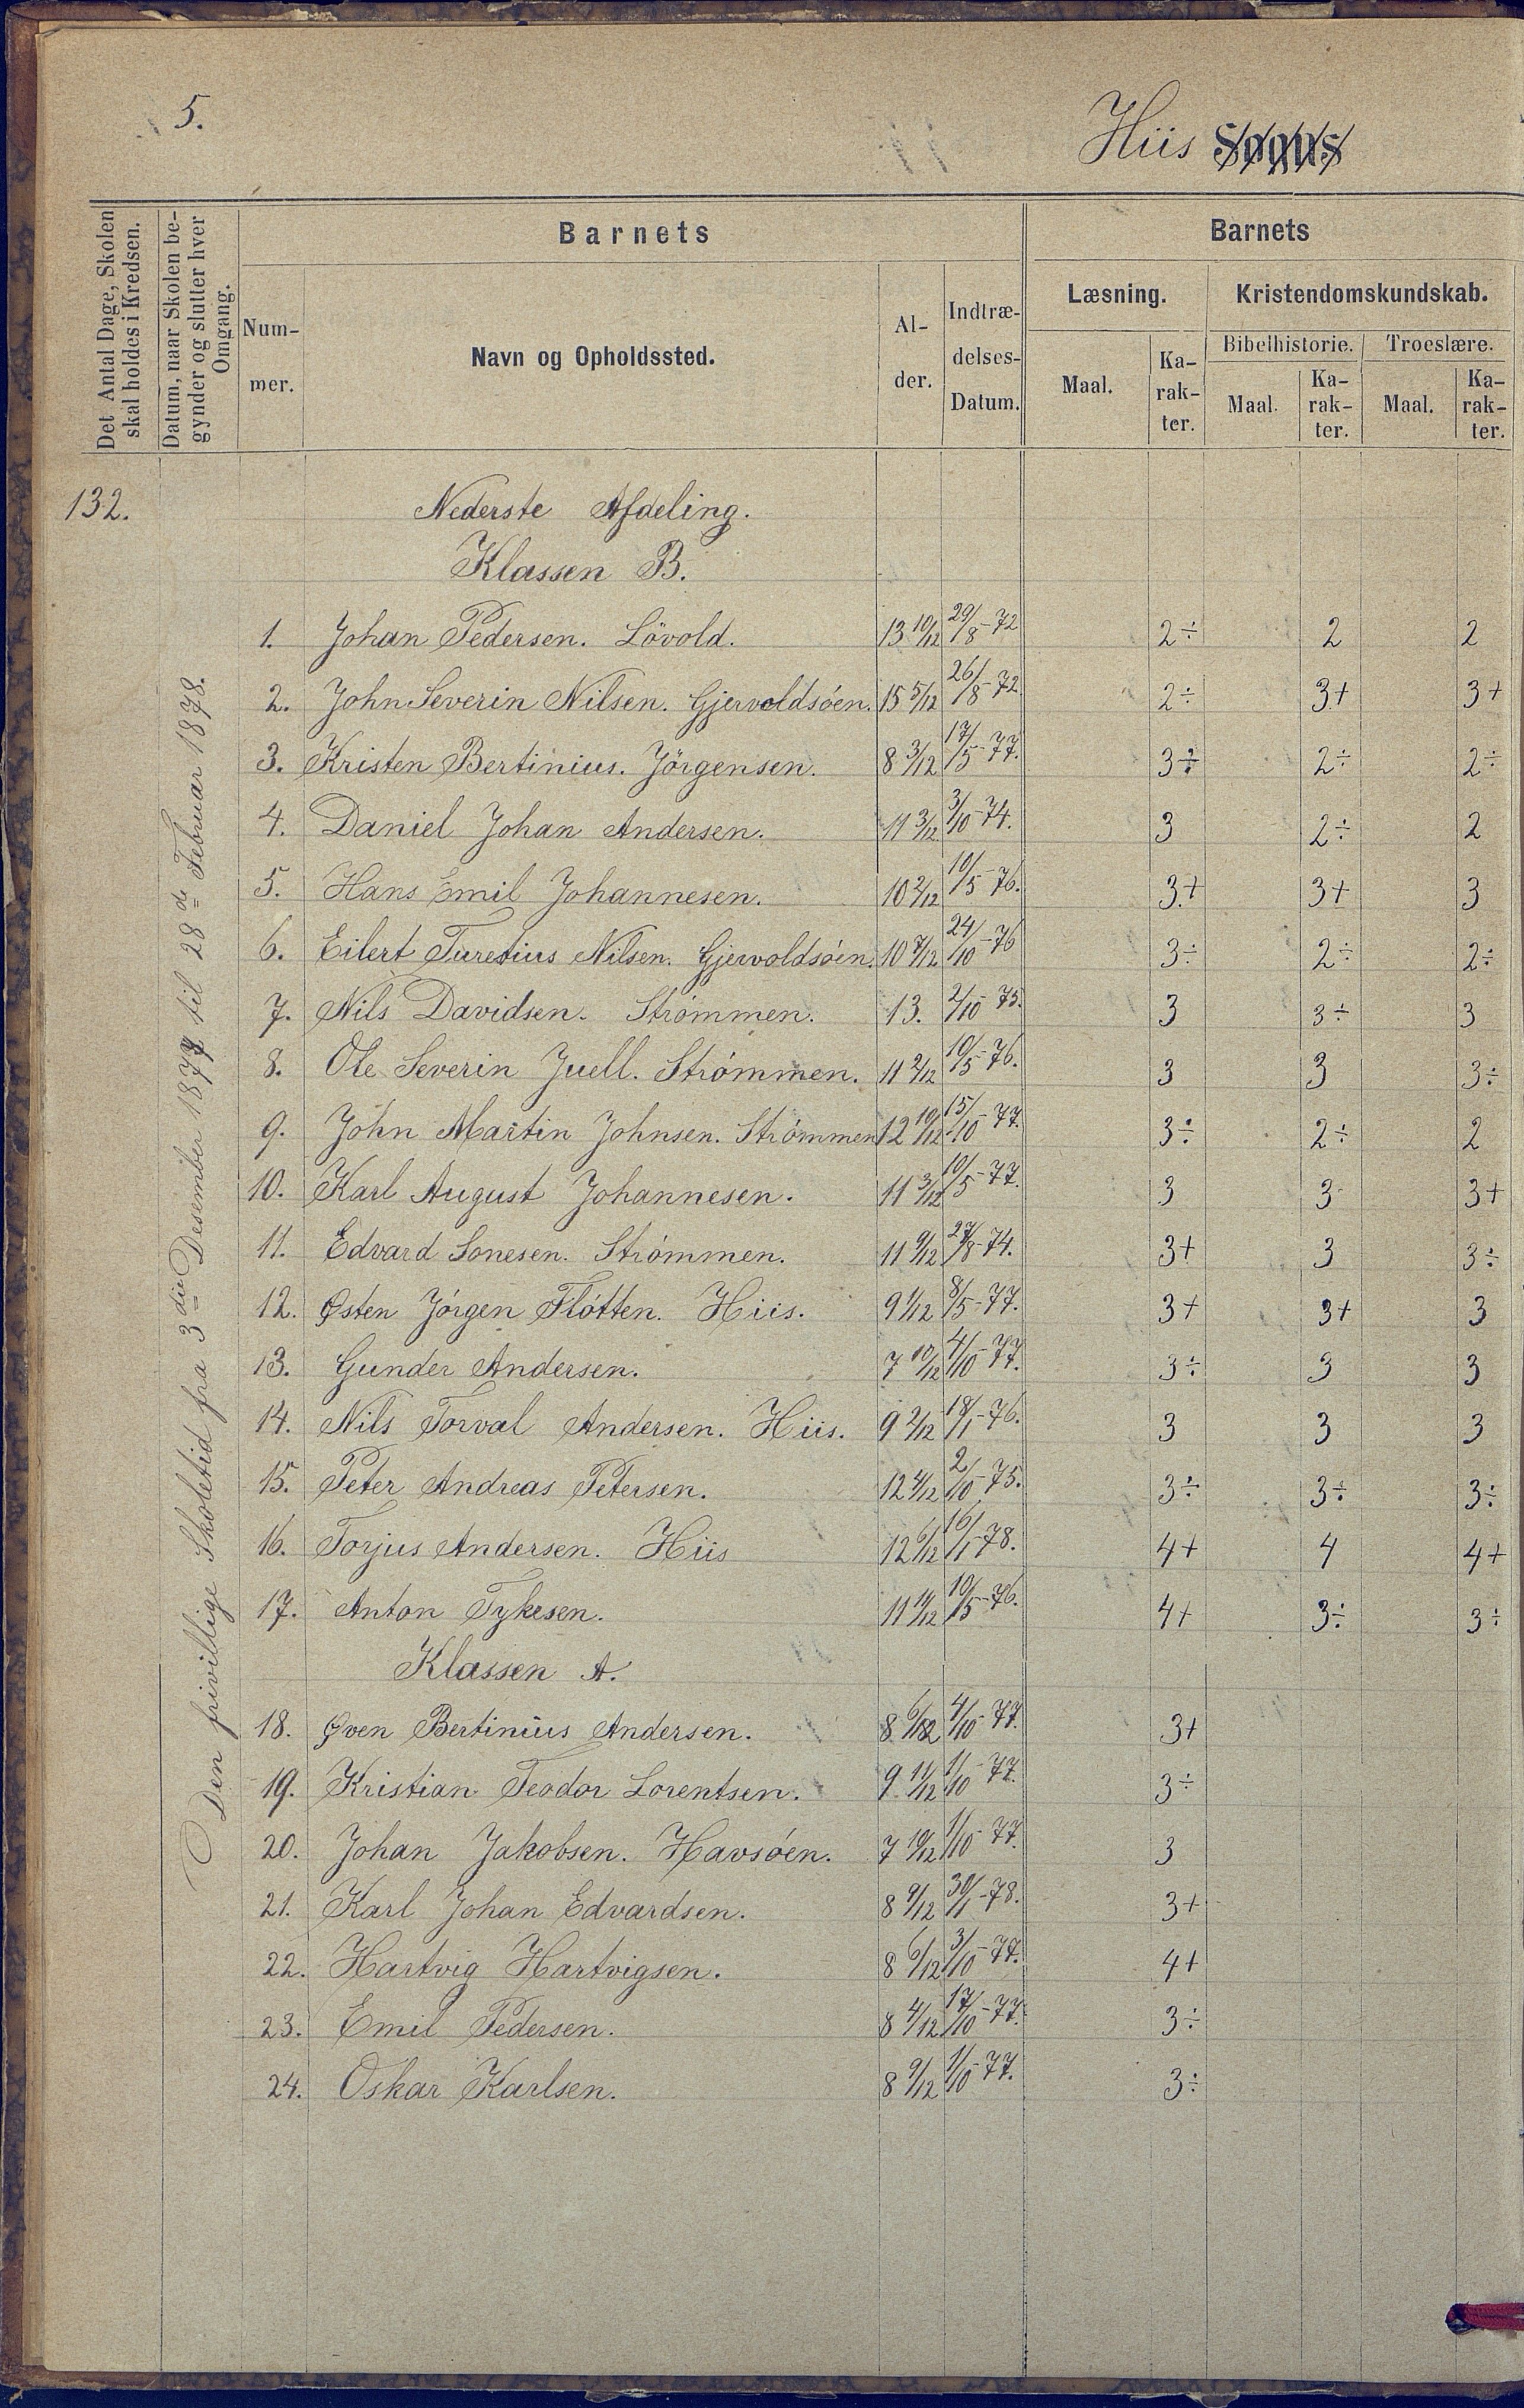 5.
Hiis Sogns
Det Antal Dage, Skolen skal holdes i Kredsen.
Datum, naar Skolen begynder og slutter hver Omgang.
Barnets
Barnets
Nummer.
Navn og Opholdssted.
Alder.
Indtrædelses-Datum.
Læsning.
Kristendomskundskab.
Bibelhistorie.
Troeslære.
Maal.
Karakter.
Maal.
Karakter.
Maal.
Karakter.
132.
Den frivillige Skoletid fra 3die Desember 1877 til 28de Februar 1878.
Nederste Afdeling.
Klassen B.
1. Johan Pedersen. Lövold. 13 10/12 29/8-72 2÷ 2 2
2. John Severin Nilsen. Gjervoldsöen. 15 5/12 26/8-72. 2÷ 3+ 3+
3. Kristen Bertinius. Jörgensen. 8 3/12 17/5-77. 3÷ 2÷ 2÷
4. Daniel Johan Andersen. 11 3/12 3/10-74. 3 2÷ 2
5. Hans Emil Johannesen. 10 2/12 10/5-76. 3+ 3+ 3
6. Eilert Turetius Nilsen. Gjervoldsöen. 10 7/12 24/10-76 3÷ 2÷ 2÷
7. Nils Davidsen. Strömmen. 13. 2/10-75. 3 3÷ 3
8. Ole Severin Juell. Strömmen. 11 2/12 10/5-76. 3 3 3÷
9. John Martin Johnsen. Strömmen 12 10/12 15/10-77. 3÷ 2÷ 2
10. Karl August Johannesen. 11 3/12 10/5-77. 3 3 3+
11. Edvard Sonesen. Strömmen. 11 9/12 27/8-74. 3+ 3 3÷
12. Østen Jörgen Flötten. Hiis. 9 1/12 8/5-77. 3+ 3+ 3
13. Gunder Andersen. 7 10/12 4/10-77. 3÷ 3 3
14. Nils Torval Andersen. Hiis. 9 2/12 18/1-76. 3 3 3
15. Peter Andreas Petersen. 12 4/12 2/10-75. 3÷ 3÷ 3÷
16. Torjus Andersen. Hiis 12 6/12 16/1-78. 4+ 4 4+
17. Anton Tykesen. 11 11/12 10/5-76. 4+ 3÷ 3÷
Klassen A.
18. Øven Bertinius Andersen. 8 6/12 4/10-77. 3+
19. Kristian Teodor Lorentsen. 9 11/12 1/10-77. 3÷
20. Johan Jakobsen. Havsöen. 7 10/12 1/10-77. 3
21. Karl Johan Edvardsen. 8 9/12 30/1-78. 3+
22. Hartvig Hartvigsen. 8 6/12 3/10-77. 4+
23. Emil Pedersen. 8 4/12 17/10-77. 3÷
24. Oskar Karlsen. 8 9/12 1/10-77. 3÷